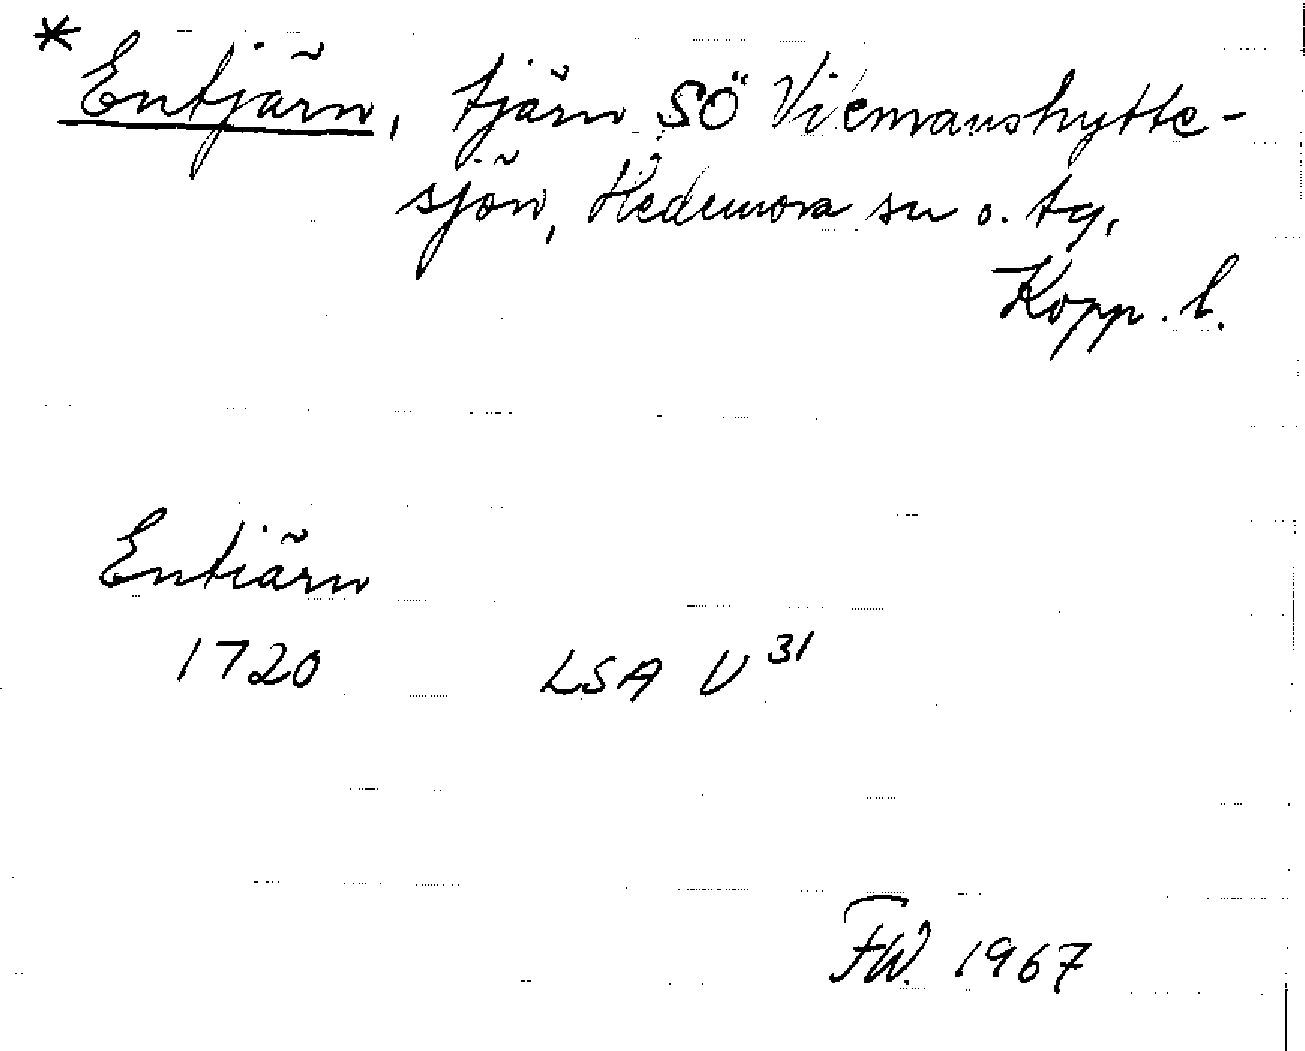 * Entjärn, tjärn SÖ Viemanshytte-
sjön, Hedemora sn o. tg,
Kopp. l.
Entiärn
1720 LSA U 31
FW. 1967